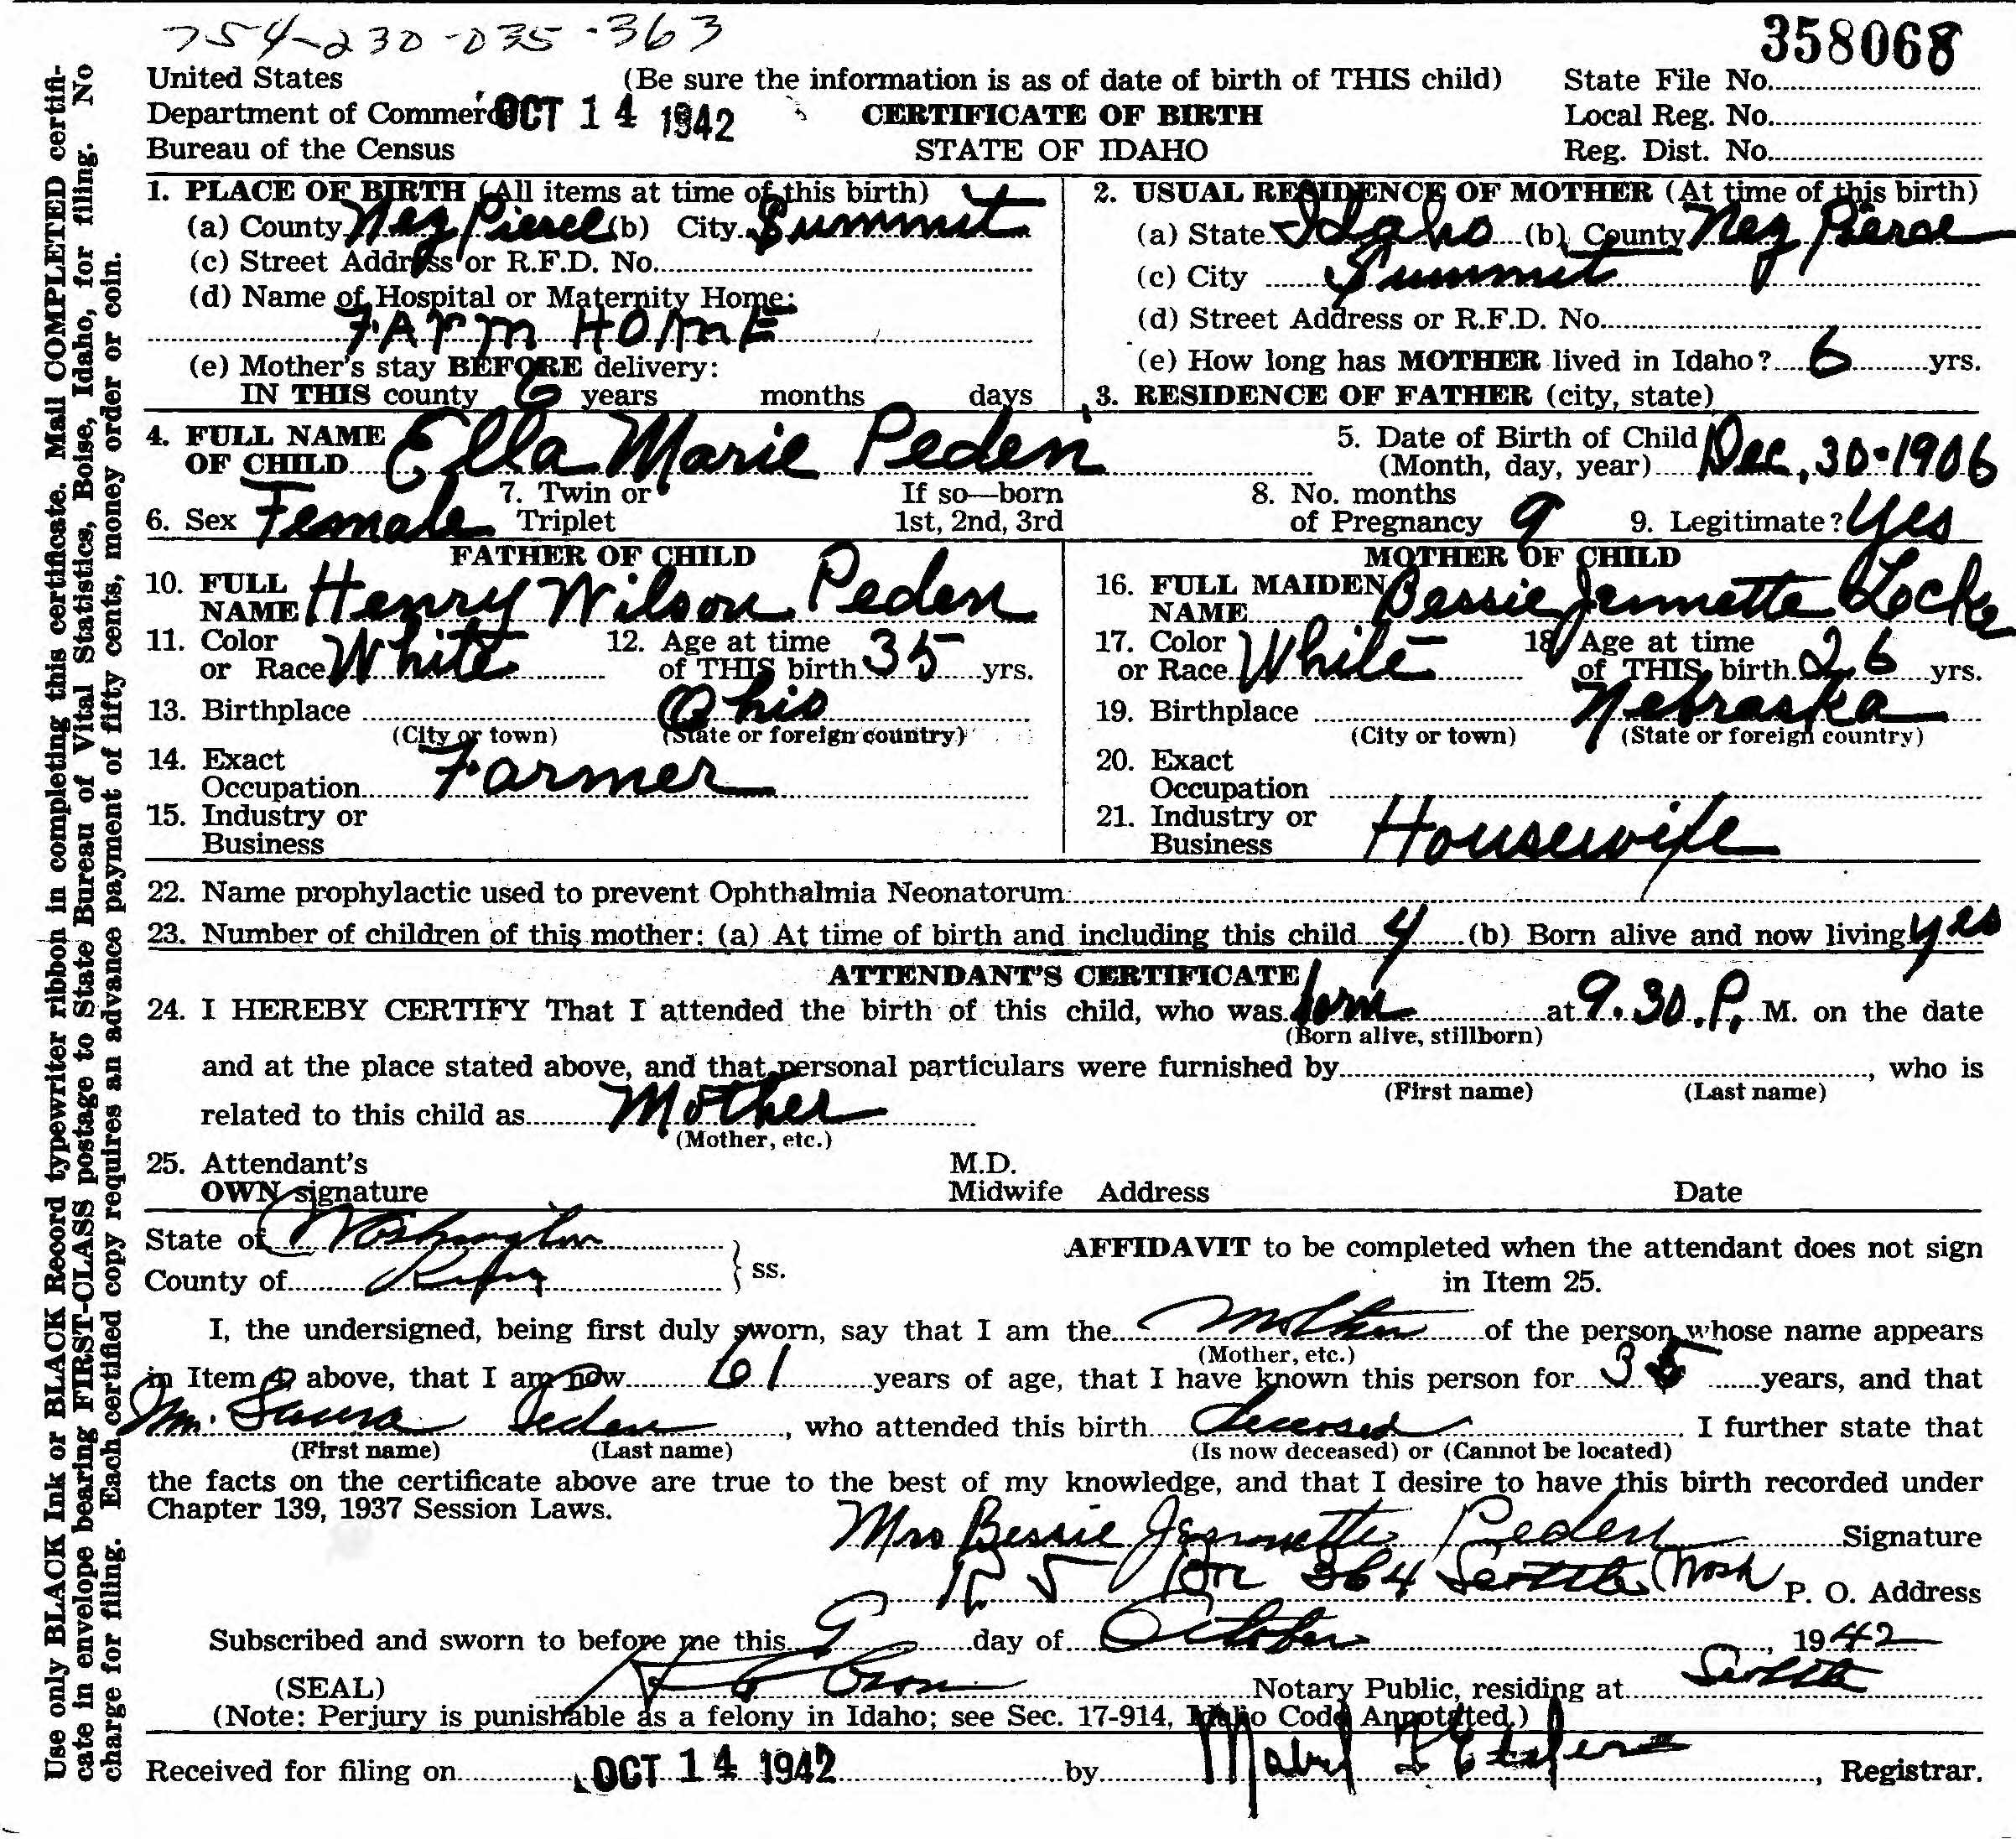 754-230-035-363
358068
United States (Be sure the information is as of date of birth of THIS child) State File No.
Department of Commerce OCT 14 1942 CERTIFICATE OF BIRTH Local Reg. No.
Bureau of the Census STATE OF IDAHO Reg. Dist. No.
1. PLACE OF BIRTH (All items at time of this birth)
(a) County Nez Pierce (b) City Summit
(c) Street Address or R.F.D. No.
(d) Name of Hospital or Maternity Home:
FArm HOmE
(e) Mother's stay BEFORE delivery:
IN THIS county 6 years months days
2. USUAL RESIDENCE OF MOTHER (At time of this birth)
(a) State Idaho (b) County Nez Pierce
(c) City Summit
(d) Street Address or R.F.D. No.
(e) How long has MOTHER lived in Idaho? 6 yrs.
3. RESIDENCE OF FATHER (city, state)
4. FULL NAME OF CHILD Ella Marie Peden
5. Date of Birth of Child (Month, day, year) Dec, 30-1906
6. Sex Female 7. Twin or Triplet If so—born 1st, 2nd, 3rd
8. No. months of Pregnancy 9 9. Legitimate? Yes
FATHER OF CHILD
10. FULL NAME Henry Wilson Peden
11. Color or Race White 12. Age at time of THIS birth 35 yrs.
13. Birthplace Ohio
(City or town) (State or foreign country)
14. Exact Occupation Farmer
15. Industry or Business
MOTHER OF CHILD
16. FULL MAIDEN NAME Bessie Jennette Locke
17. Color or Race White 18. Age at time of THIS birth 26 yrs.
19. Birthplace Nebraska
(City or town) (State or foreign country)
20. Exact Occupation
21. Industry or Business Housewife
22. Name prophylactic used to prevent Ophthalmia Neonatorum:
23. Number of children of this mother: (a) At time of birth and including this child 4 (b) Born alive and now living yes
ATTENDANT'S CERTIFICATE
24. I HEREBY CERTIFY That I attended the birth of this child, who was born at 9.30 P. M. on the date
(Born alive, stillborn)
and at the place stated above, and that personal particulars were furnished by , who is
(First name) (Last name)
related to this child as Mother
(Mother, etc.)
25. Attendant's M.D.
OWN signature Midwife Address Date
State of Washington
County of King } ss.
AFFIDAVIT to be completed when the attendant does not sign
in Item 25.
I, the undersigned, being first duly sworn, say that I am the Mother of the person whose name appears
(Mother, etc.)
in Item 4, above, that I am now 61 years of age, that I have known this person for 35 years, and that
Laura Peden, who attended this birth deceased. I further state that
(First name) (Last name) (Is now deceased) or (Cannot be located)
the facts on the certificate above are true to the best of my knowledge, and that I desire to have this birth recorded under
Chapter 139, 1937 Session Laws.
Mrs Bessie Jennette Peden Signature
R 5 Box 364 Seattle Wash P. O. Address
Subscribed and sworn to before me this 9 day of October, 1942
(SEAL) Notary Public, residing at Seattle
(Note: Perjury is punishable as a felony in Idaho; see Sec. 17-914, Idaho Code Annotated.)
Received for filing on OCT 14 1942 by Mabel , Registrar.
Use only BLACK Ink or BLACK Record typewriter ribbon in completing this certificate. Mail COMPLETED certifi-
cate in envelope bearing FIRST-CLASS postage to State Bureau of Vital Statistics, Boise, Idaho, for filing. No
charge for filing. Each certified copy requires an advance payment of fifty cents, money order or coin.